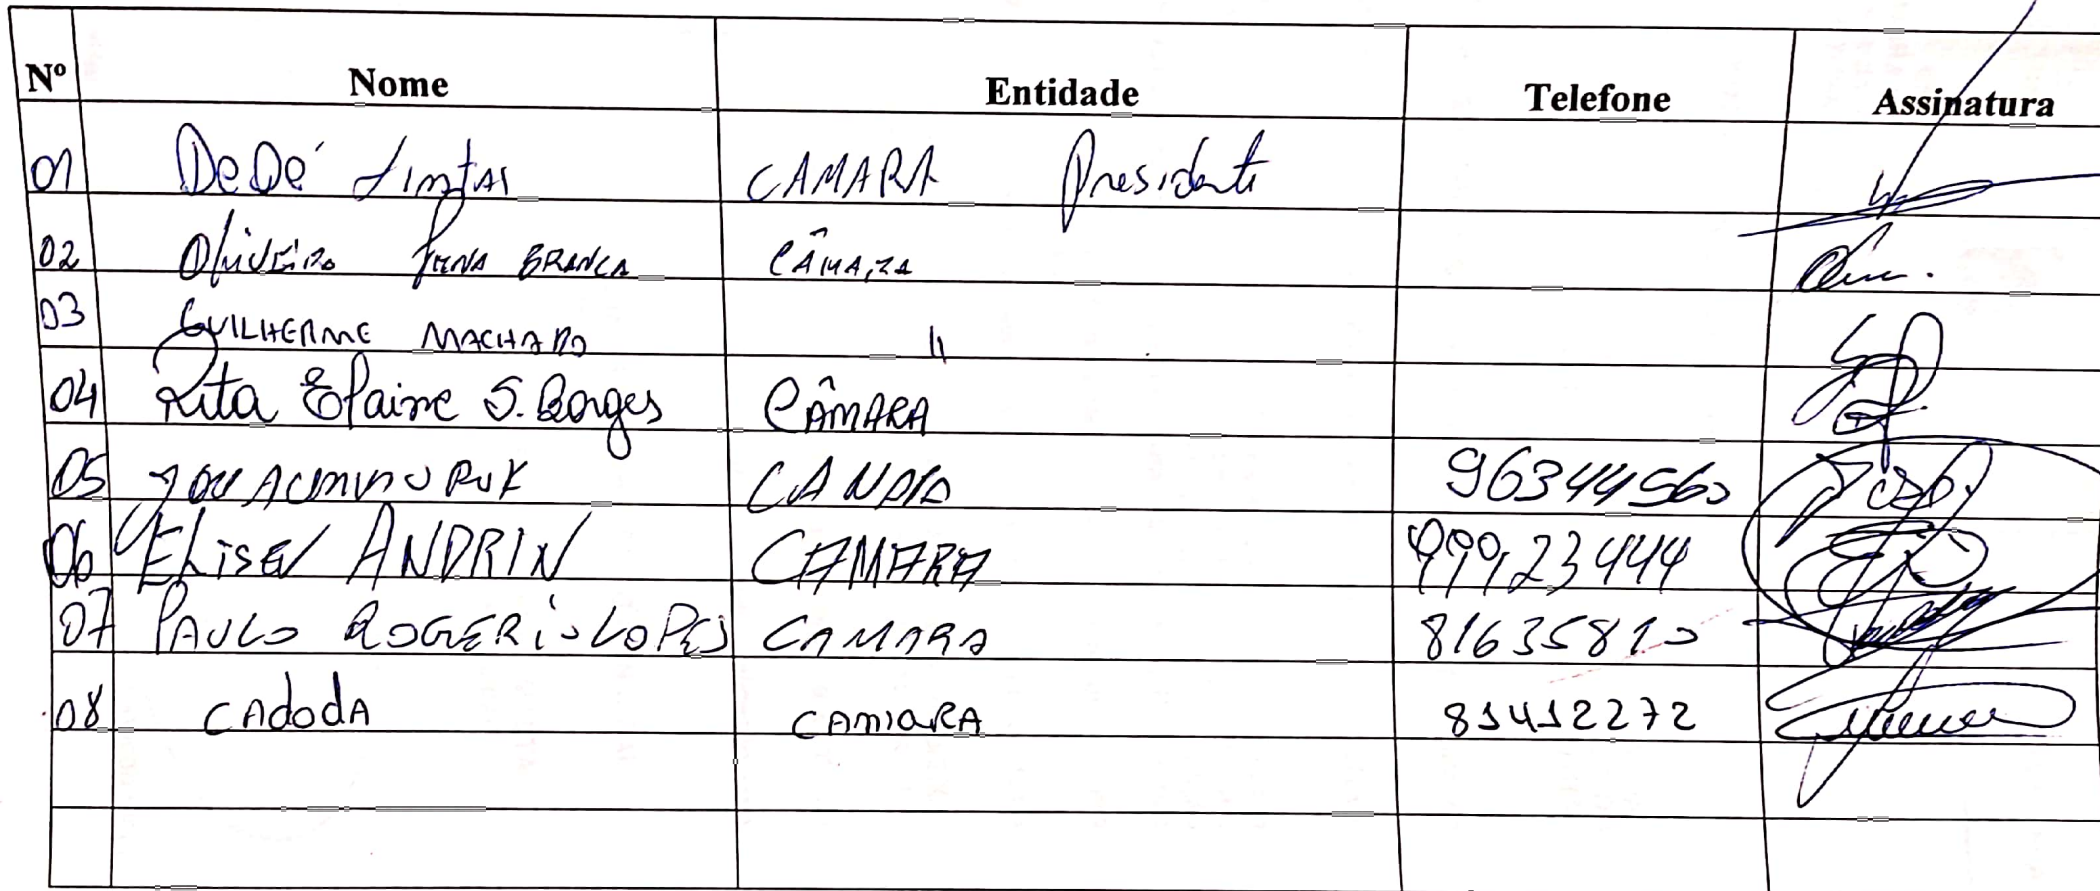 Nº Nome Entidade Telefone Assinatura
01 DeDé CAMARA Presidente
02 Oliveiro PENA BRANCA CÂMARA
03 GUILHERME MACHADO "
04 Rita Elaine S. Borges CÂMARA
05 96344560
06 ELISEU ANDRIN CAMARA 99923444
07 PAULO ROGERIO LOPES CAMARA 81635810
08 CADODA CAMARA 81412272